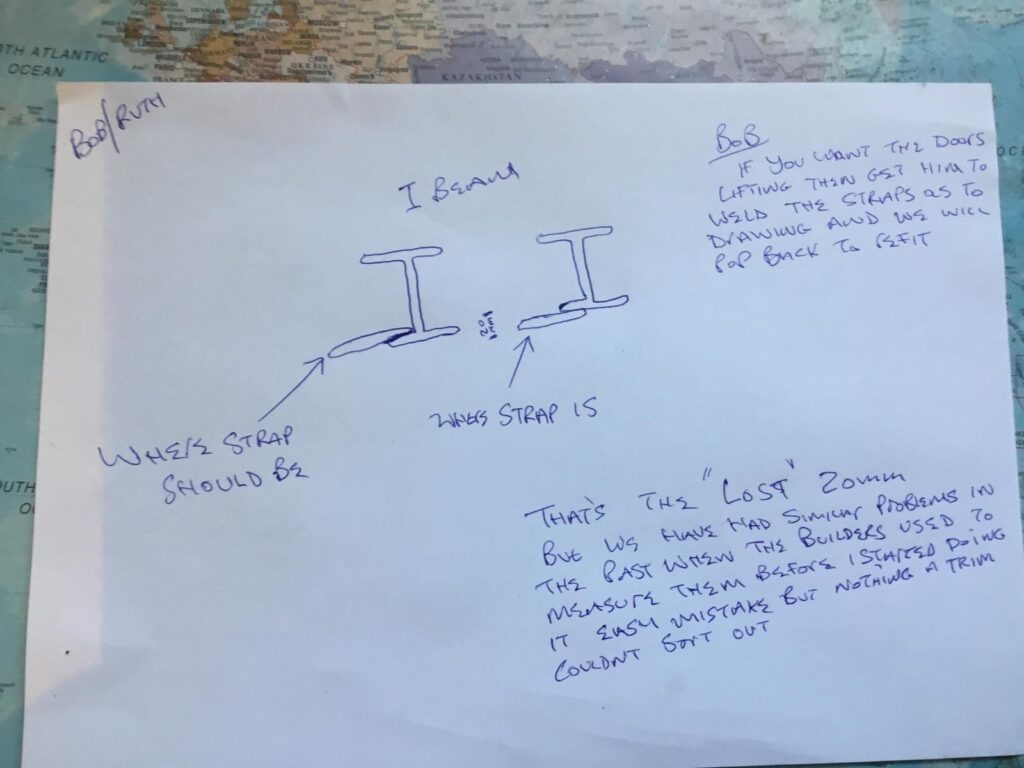 TH ATLANTIC
OCEAN
KAZAKHSTAN
BOB/RUTH
I BEAM
BOB
IF YOU WANT THE DOORS
LIFTING THEN GET HIM TO
WELD THE STRAPS AS TO
DRAWING AND WE WILL
POP BACK TO REFIT
20mm
WHERE STRAP
SHOULD BE
WHERE STRAP IS
THAT'S THE "LOST" 20mm
BUT WE HAVE HAD SIMILAR PROBLEMS IN
THE PAST WHEN THE BUILDERS USED TO
MEASURE THEM BEFORE I STARTED DOING
IT EASY MISTAKE BUT NOTHING A TRIM
COULDNT SORT OUT